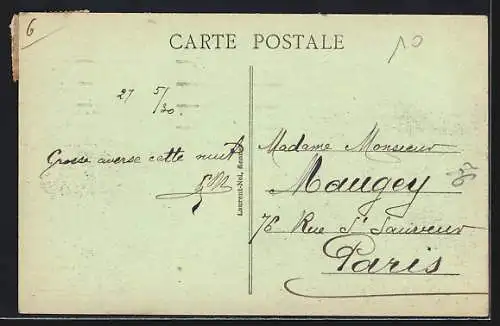 6
CARTE POSTALE
10
27 5/30.
Grosse averse cette nuit
Laurent-Nel, Rennes
Madame Monsieur
Maugey
76 Rue St Sauveur
Paris